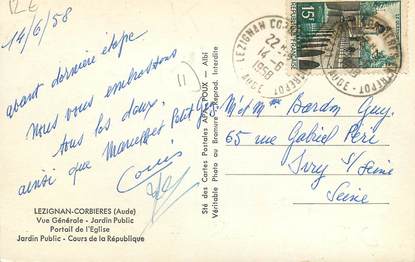 12 E
14/6/58
avant dernière étape
Nous vous embrassons
tous les deux,
ainsi que
LEZIGNAN-CORBIERES (Aude)
Vue Générale - Jardin Public
Portail de l'Eglise
Jardin Public - Cours de la République
11
Sté des Cartes Postales APA-POUX - Albi
Véritable Photo au Bromure - Reprod. Interdite
LEZIGNAN CORBIÈRES
14-6
1958
AUDE
15F
M et Mme Bardon Guy
65 rue Gabriel Péri
Ivry s/Seine
Seine